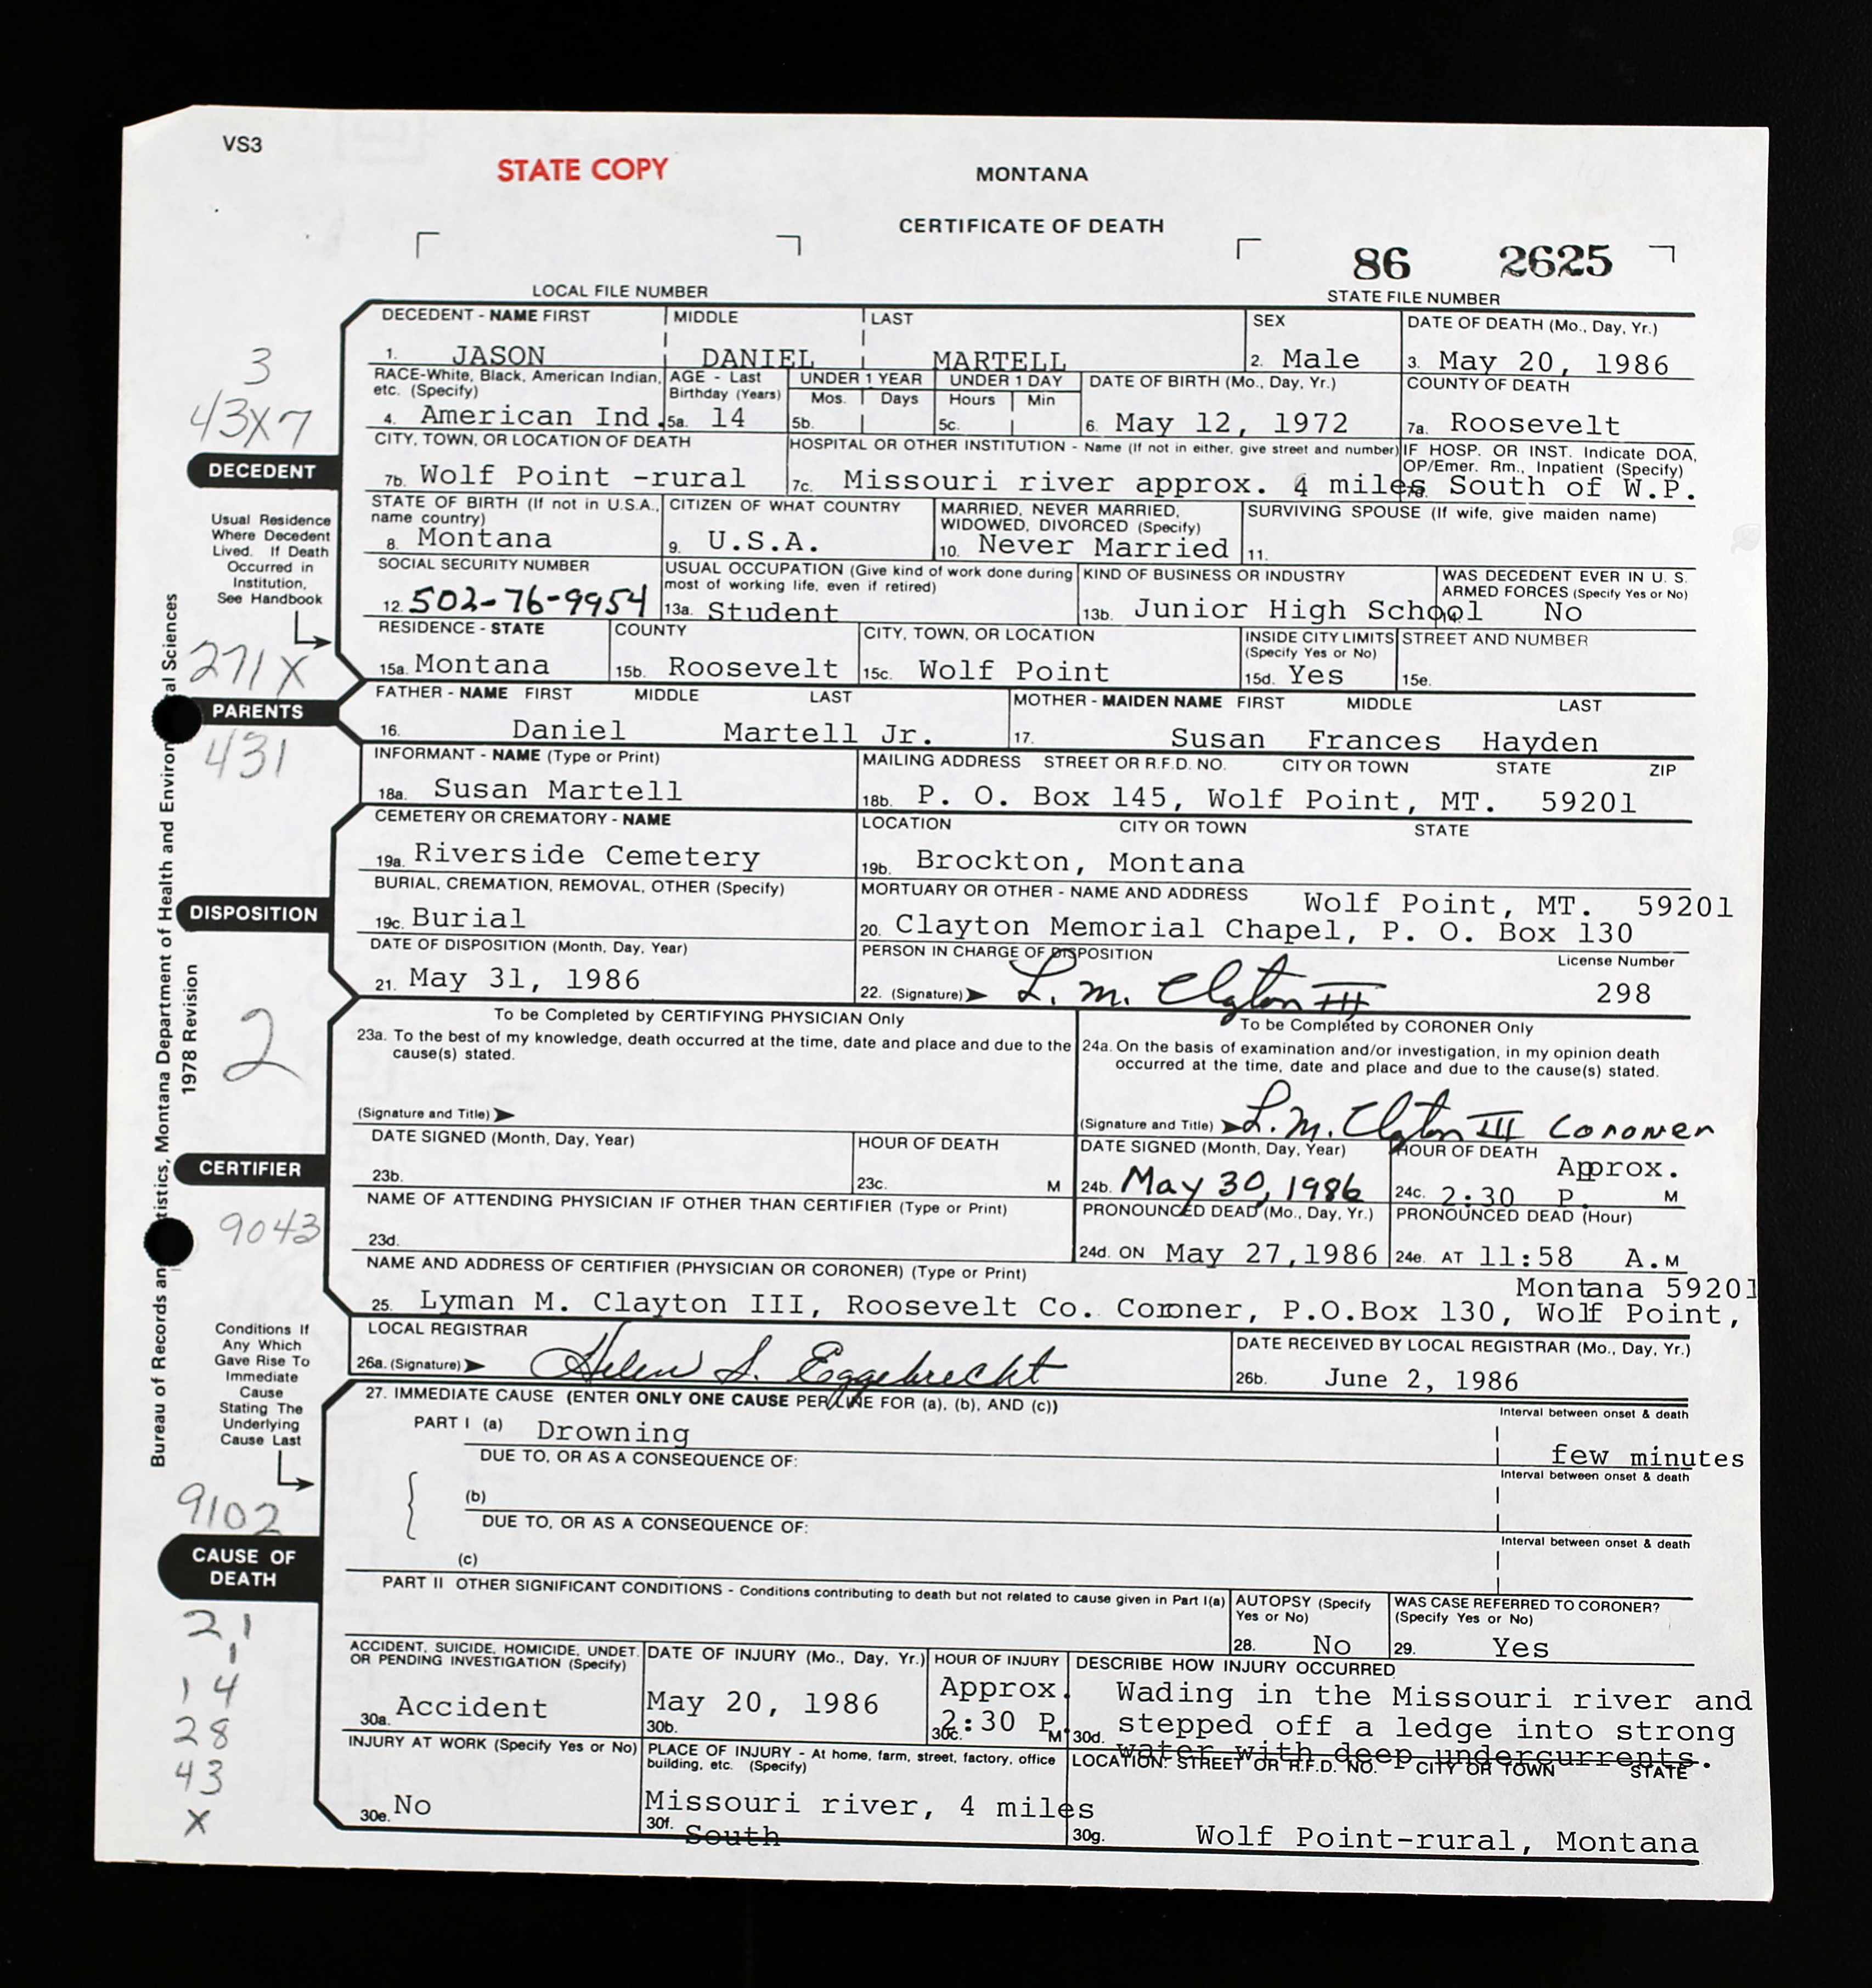 VS3
STATE COPY
MONTANA
CERTIFICATE OF DEATH
86 2625
LOCAL FILE NUMBER
STATE FILE NUMBER
DECEDENT - NAME FIRST MIDDLE LAST SEX DATE OF DEATH (Mo., Day, Yr.)
1. JASON DANIEL MARTELL 2. Male 3. May 20, 1986
3
RACE-White, Black, American Indian, etc. (Specify) AGE - Last Birthday (Years) UNDER 1 YEAR Mos. Days UNDER 1 DAY Hours Min DATE OF BIRTH (Mo., Day, Yr.) COUNTY OF DEATH
43X7
4. American Ind. 5a. 14 5b. 5c. 6. May 12, 1972 7a. Roosevelt
CITY, TOWN, OR LOCATION OF DEATH HOSPITAL OR OTHER INSTITUTION - Name (If not in either, give street and number) IF HOSP. OR INST. Indicate DOA, OP/Emer. Rm., Inpatient (Specify)
DECEDENT
7b. Wolf Point -rural 7c. Missouri river approx. 4 miles 7d. South of W.P.
STATE OF BIRTH (If not in U.S.A., name country) CITIZEN OF WHAT COUNTRY MARRIED, NEVER MARRIED, WIDOWED, DIVORCED (Specify) SURVIVING SPOUSE (If wife, give maiden name)
8. Montana 9. U.S.A. 10. Never Married 11.
Usual Residence
Where Decedent
Lived. If Death
Occurred in
Institution,
See Handbook
SOCIAL SECURITY NUMBER USUAL OCCUPATION (Give kind of work done during most of working life, even if retired) KIND OF BUSINESS OR INDUSTRY WAS DECEDENT EVER IN U. S. ARMED FORCES (Specify Yes or No)
12. 502-76-9954 13a. Student 13b. Junior High School 14. No
RESIDENCE - STATE COUNTY CITY, TOWN, OR LOCATION INSIDE CITY LIMITS (Specify Yes or No) STREET AND NUMBER
271X
15a. Montana 15b. Roosevelt 15c. Wolf Point 15d. Yes 15e.
PARENTS
FATHER - NAME FIRST MIDDLE LAST MOTHER - MAIDEN NAME FIRST MIDDLE LAST
16. Daniel Martell Jr. 17. Susan Frances Hayden
431
INFORMANT - NAME (Type or Print) MAILING ADDRESS STREET OR R.F.D. NO. CITY OR TOWN STATE ZIP
18a. Susan Martell 18b. P. O. Box 145, Wolf Point, MT. 59201
CEMETERY OR CREMATORY - NAME LOCATION CITY OR TOWN STATE
19a. Riverside Cemetery 19b. Brockton, Montana
DISPOSITION
BURIAL, CREMATION, REMOVAL, OTHER (Specify) MORTUARY OR OTHER - NAME AND ADDRESS Wolf Point, MT. 59201
19c. Burial 20. Clayton Memorial Chapel, P. O. Box 130
DATE OF DISPOSITION (Month, Day, Year) PERSON IN CHARGE OF DISPOSITION License Number
21. May 31, 1986 22. (Signature) L. M. Clayton III 298
2
To be Completed by CERTIFYING PHYSICIAN Only To be Completed by CORONER Only
23a. To the best of my knowledge, death occurred at the time, date and place and due to the cause(s) stated.
24a. On the basis of examination and/or investigation, in my opinion death occurred at the time, date and place and due to the cause(s) stated.
(Signature and Title) (Signature and Title) L. M. Clayton III Coroner
CERTIFIER
DATE SIGNED (Month, Day, Year) HOUR OF DEATH DATE SIGNED (Month, Day, Year) HOUR OF DEATH Approx.
23b. 23c. M 24b. May 30, 1986 24c. 2:30 P. M
9043
NAME OF ATTENDING PHYSICIAN IF OTHER THAN CERTIFIER (Type or Print) PRONOUNCED DEAD (Mo., Day, Yr.) PRONOUNCED DEAD (Hour)
23d. 24d. ON May 27,1986 24e. AT 11:58 A. M
NAME AND ADDRESS OF CERTIFIER (PHYSICIAN OR CORONER) (Type or Print) Montana 59201
25. Lyman M. Clayton III, Roosevelt Co. Coroner, P.O.Box 130, Wolf Point,
LOCAL REGISTRAR DATE RECEIVED BY LOCAL REGISTRAR (Mo., Day, Yr.)
26a. (Signature) Helen S. Eggebrecht 26b. June 2, 1986
Conditions If
Any Which
Gave Rise To
Immediate
Cause
Stating The
Underlying
Cause Last
27. IMMEDIATE CAUSE (ENTER ONLY ONE CAUSE PER LINE FOR (a), (b), AND (c)) Interval between onset & death
PART I (a) Drowning few minutes
DUE TO, OR AS A CONSEQUENCE OF: Interval between onset & death
(b)
DUE TO, OR AS A CONSEQUENCE OF: Interval between onset & death
(c)
9102
CAUSE OF DEATH
PART II OTHER SIGNIFICANT CONDITIONS - Conditions contributing to death but not related to cause given in Part I(a) AUTOPSY (Specify Yes or No) WAS CASE REFERRED TO CORONER? (Specify Yes or No)
28. No 29. Yes
21
1
14
28
43
X
ACCIDENT, SUICIDE, HOMICIDE, UNDET. OR PENDING INVESTIGATION (Specify) DATE OF INJURY (Mo., Day, Yr.) HOUR OF INJURY DESCRIBE HOW INJURY OCCURRED
30a. Accident 30b. May 20, 1986 30c. Approx. 2:30 P. M 30d. Wading in the Missouri river and
stepped off a ledge into strong
water with deep undercurrents.
INJURY AT WORK (Specify Yes or No) PLACE OF INJURY - At home, farm, street, factory, office building, etc. (Specify) LOCATION: STREET OR R.F.D. NO. CITY OR TOWN STATE
30e. No 30f. Missouri river, 4 miles South 30g. Wolf Point-rural, Montana
Bureau of Records an tistics, Montana Department of Health and Environ al Sciences
1978 Revision